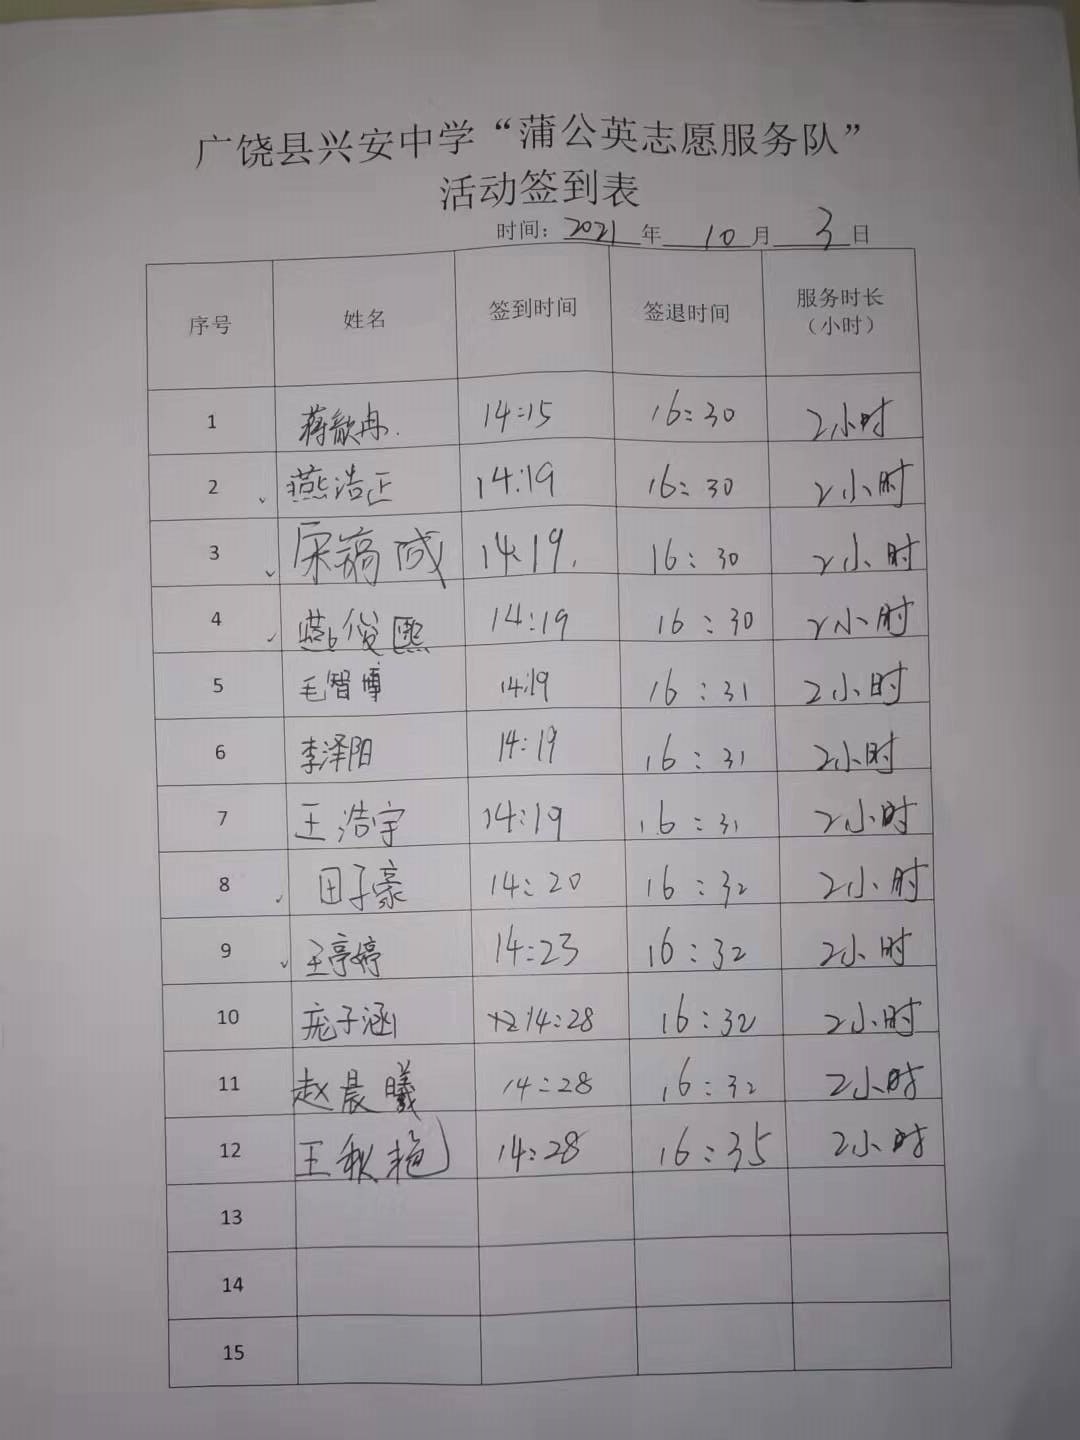 广饶县兴安中学“蒲公英志愿服务队”
活动签到表
时间：2021年 10月 3日
序号 姓名 签到时间 签退时间 服务时长（小时）
1 蒋歆冉. 14:15 16:30 2小时
2 燕浩正 14:19 16:30 2小时
3 宋镐成 14:19. 16:30 2小时
4 燕俊熙 14:19 16:30 2小时
5 毛智博 14:19 16:31 2小时
6 李泽阳 14:19 16:31 2小时
7 王浩宇 14:19 16:31 2小时
8 田子豪 14:20 16:32 2小时
9 王亭婷 14:23 16:32 2小时
10 庞子涵 14:28 16:32 2小时
11 赵晨曦 14:28 16:32 2小时
12 王秋艳 14:28 16:35 2小时
13
14
15